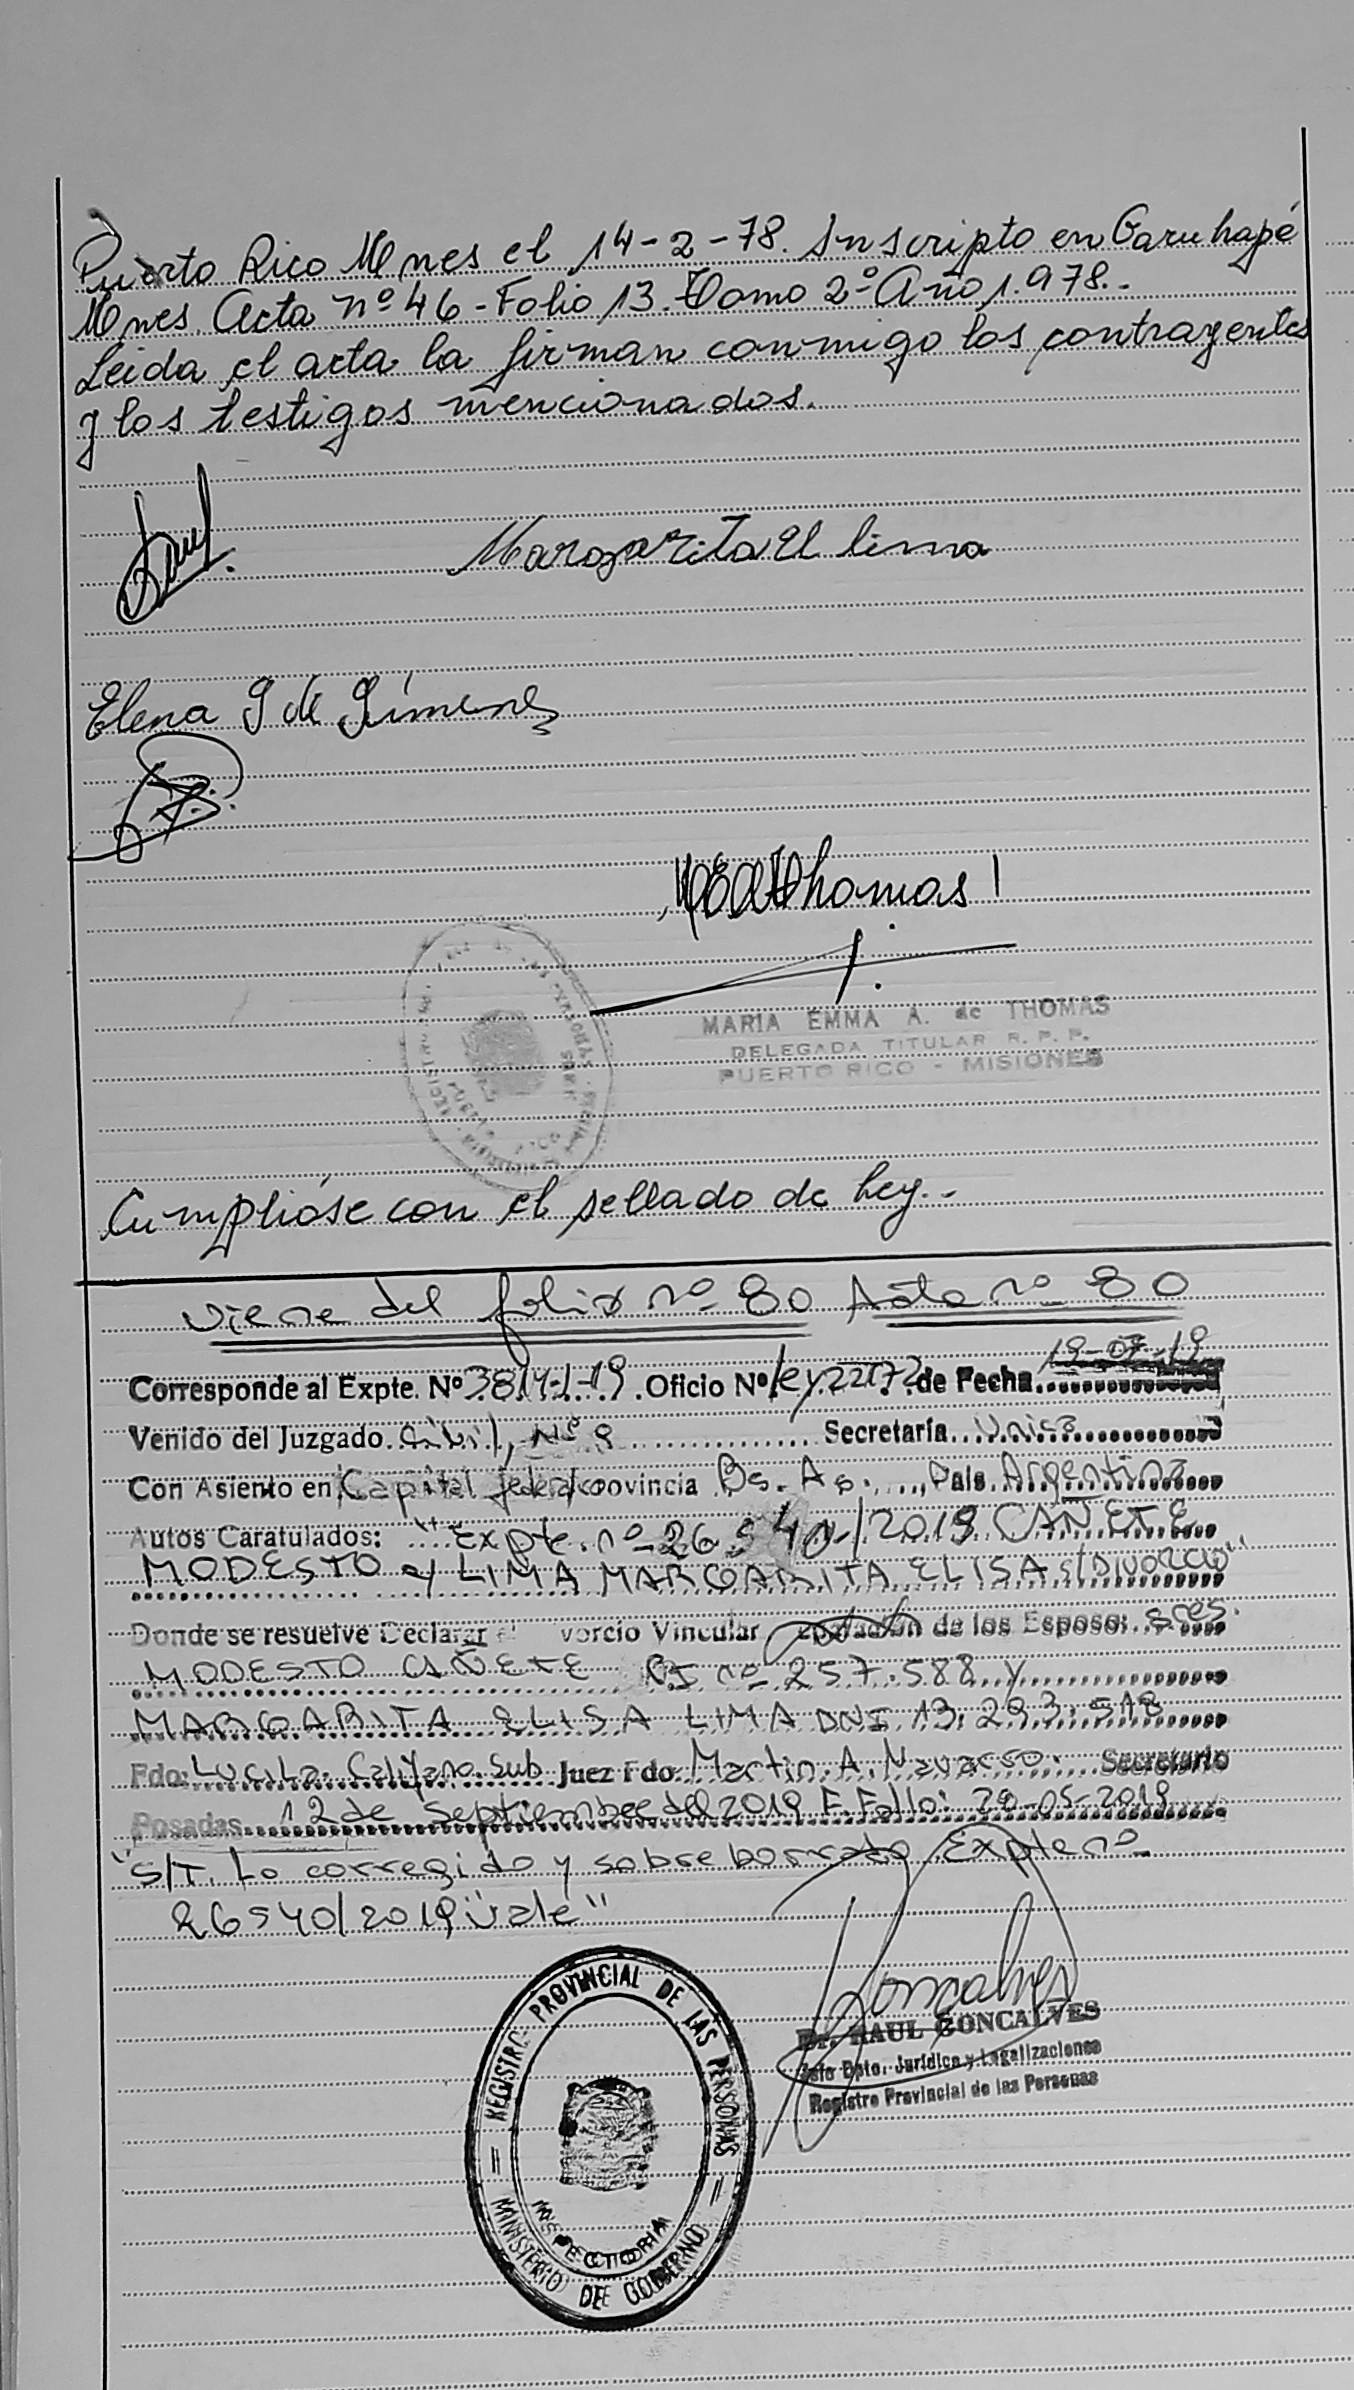 Puerto Rico Mnes el 14-2-78. Inscripto en Garuhapé
Mnes. Acta nº 46 - Folio 13. Tomo 2º Año 1.978.-
Leida el acta la firman conmigo los contrayentes
y los testigos mencionados.
Margarita El lima
Elena G de Gimenez
Thomas
MARIA EMMA A. de THOMAS
DELEGADA TITULAR R. P. P.
PUERTO RICO - MISIONES
Cumplióse con el sellado de Ley.-
Viene del folio nº 80 Acta nº 80
Corresponde al Expte. Nº 3814-L-19. Oficio Nº ley 22172 de Fecha 19-07-19
Venido del Juzgado Civil, Nº 8 Secretaría Unica
Con Asiento en Capital federal provincia Bs. As. País Argentina
Autos Caratulados: "Expte. nº 26540/2019 CAÑETE
MODESTO c/ LIMA MARGARITA ELISA s/DIVORCIO"
Donde se resuelve Declarar el vorcio Vincular de los Esposos sres.
MODESTO CAÑETE CI nº 257.588 y
MARGARITA ELISA LIMA DNI 13.293.518
Fdo: Lucila Calvano. Sub Juez Fdo: Martin A. Navarro. Secretario
Posadas 12 de Septiembre del 2019 F. Fallo: 20-05-2019
"S/T. Lo corregido y sobre borrado Expte nº
26540/2019 "vale"
Goncalves
Dr. RAUL GONCALVES
Jefe Dpto. Jurídico y Legalizaciones
Registro Provincial de las Personas
REGISTRO PROVINCIAL DE LAS PERSONAS
INSPECTORIA
MINISTERIO DE GOBIERNO